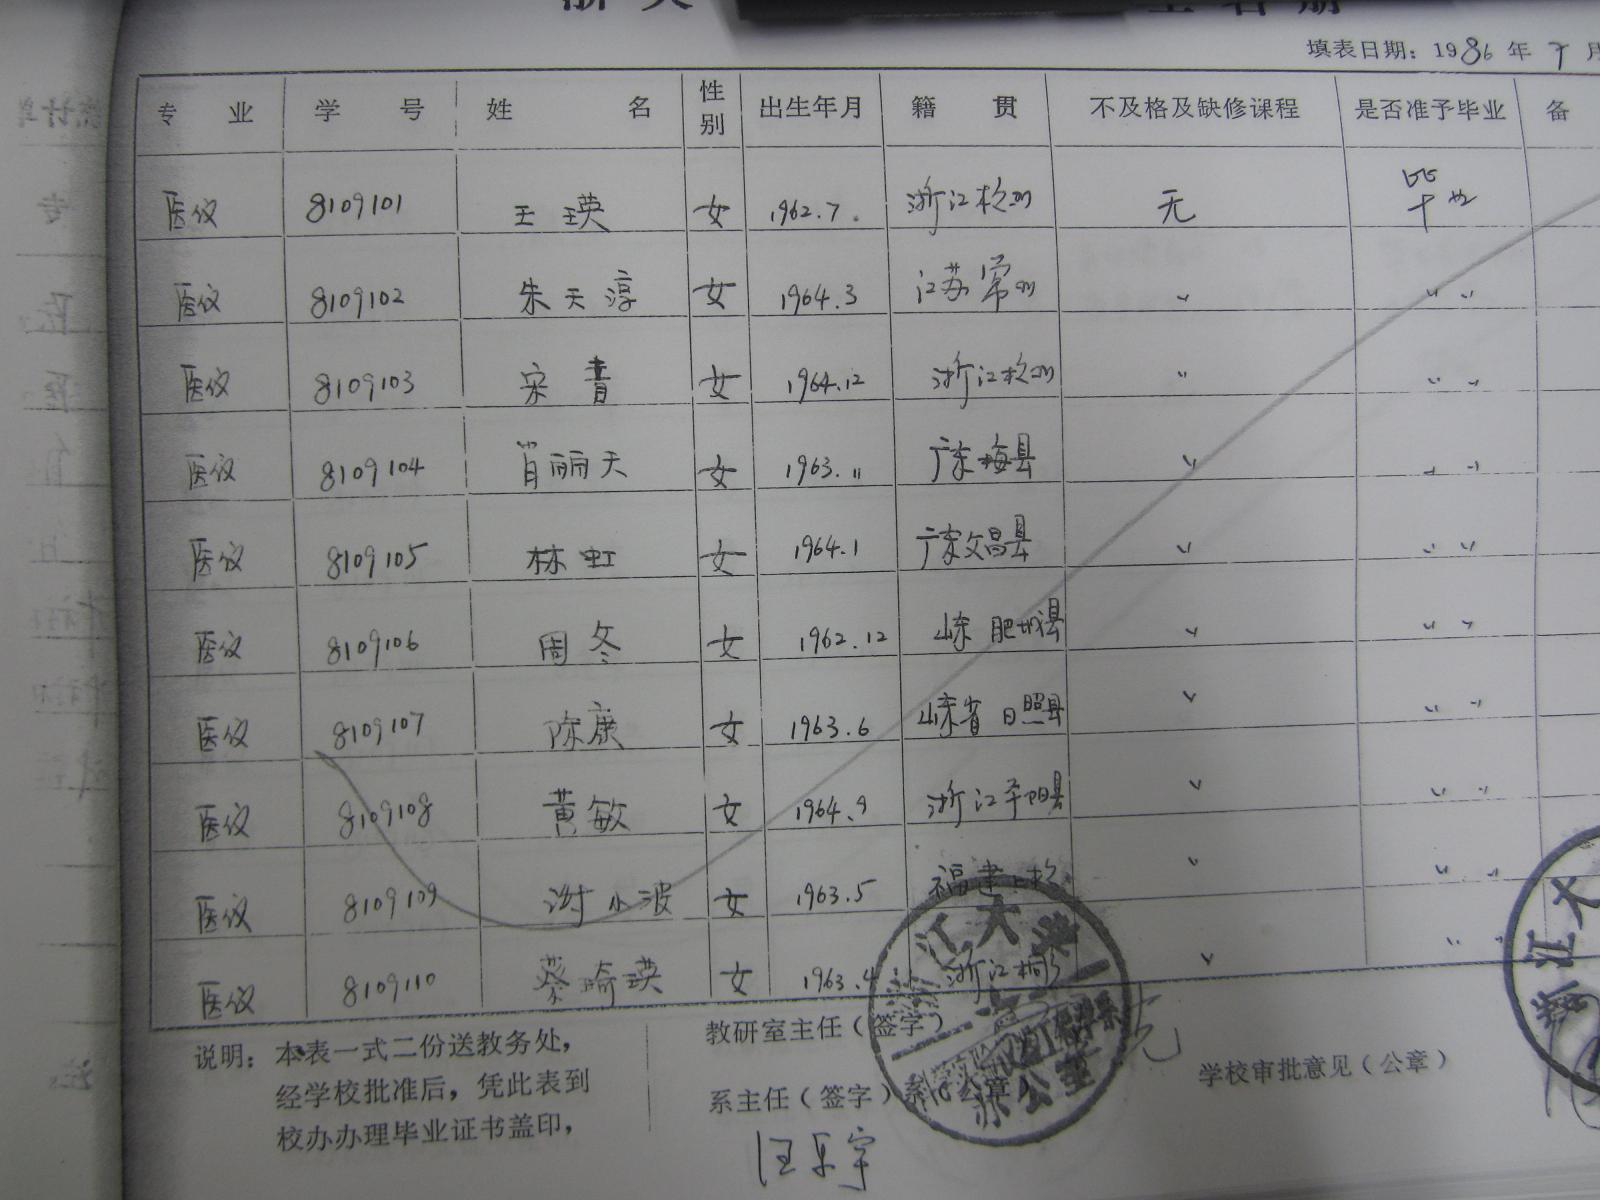 浙大 生名册
填表日期：1986年7月
专业 学号 姓名 性别 出生年月 籍贯 不及格及缺修课程 是否准予毕业 备
医仪 8109101 王瑛 女 1962.7. 浙江杭州 无 毕业
医仪 8109102 朱天淳 女 1964.3 江苏常州 〃 〃 〃
医仪 8109103 宋青 女 1964.12 浙江杭州 〃 〃 〃
医仪 8109104 肖丽天 女 1963.11 广东梅县 〃 〃 〃
医仪 8109105 林虹 女 1964.1 广东文昌县 〃 〃 〃
医仪 8109106 周冬 女 1962.12 山东肥城县 〃 〃 〃
医仪 8109107 陈康 女 1963.6 山东省日照县 〃 〃 〃
医仪 8109108 黄敏 女 1964.9 浙江平阳县 〃 〃 〃
医仪 8109109 谢小波 女 1963.5 福建上杭 〃 〃 〃
医仪 8109110 蔡琦瑛 女 1963.4 浙江桐乡 〃 〃 〃
说明：本表一式二份送教务处，
经学校批准后，凭此表到
校办办理毕业证书盖印，
教研室主任（签字）
系主任（签字）系（公章）
汪乐宇
学校审批意见（公章）
浙江大学
办公室
浙江大